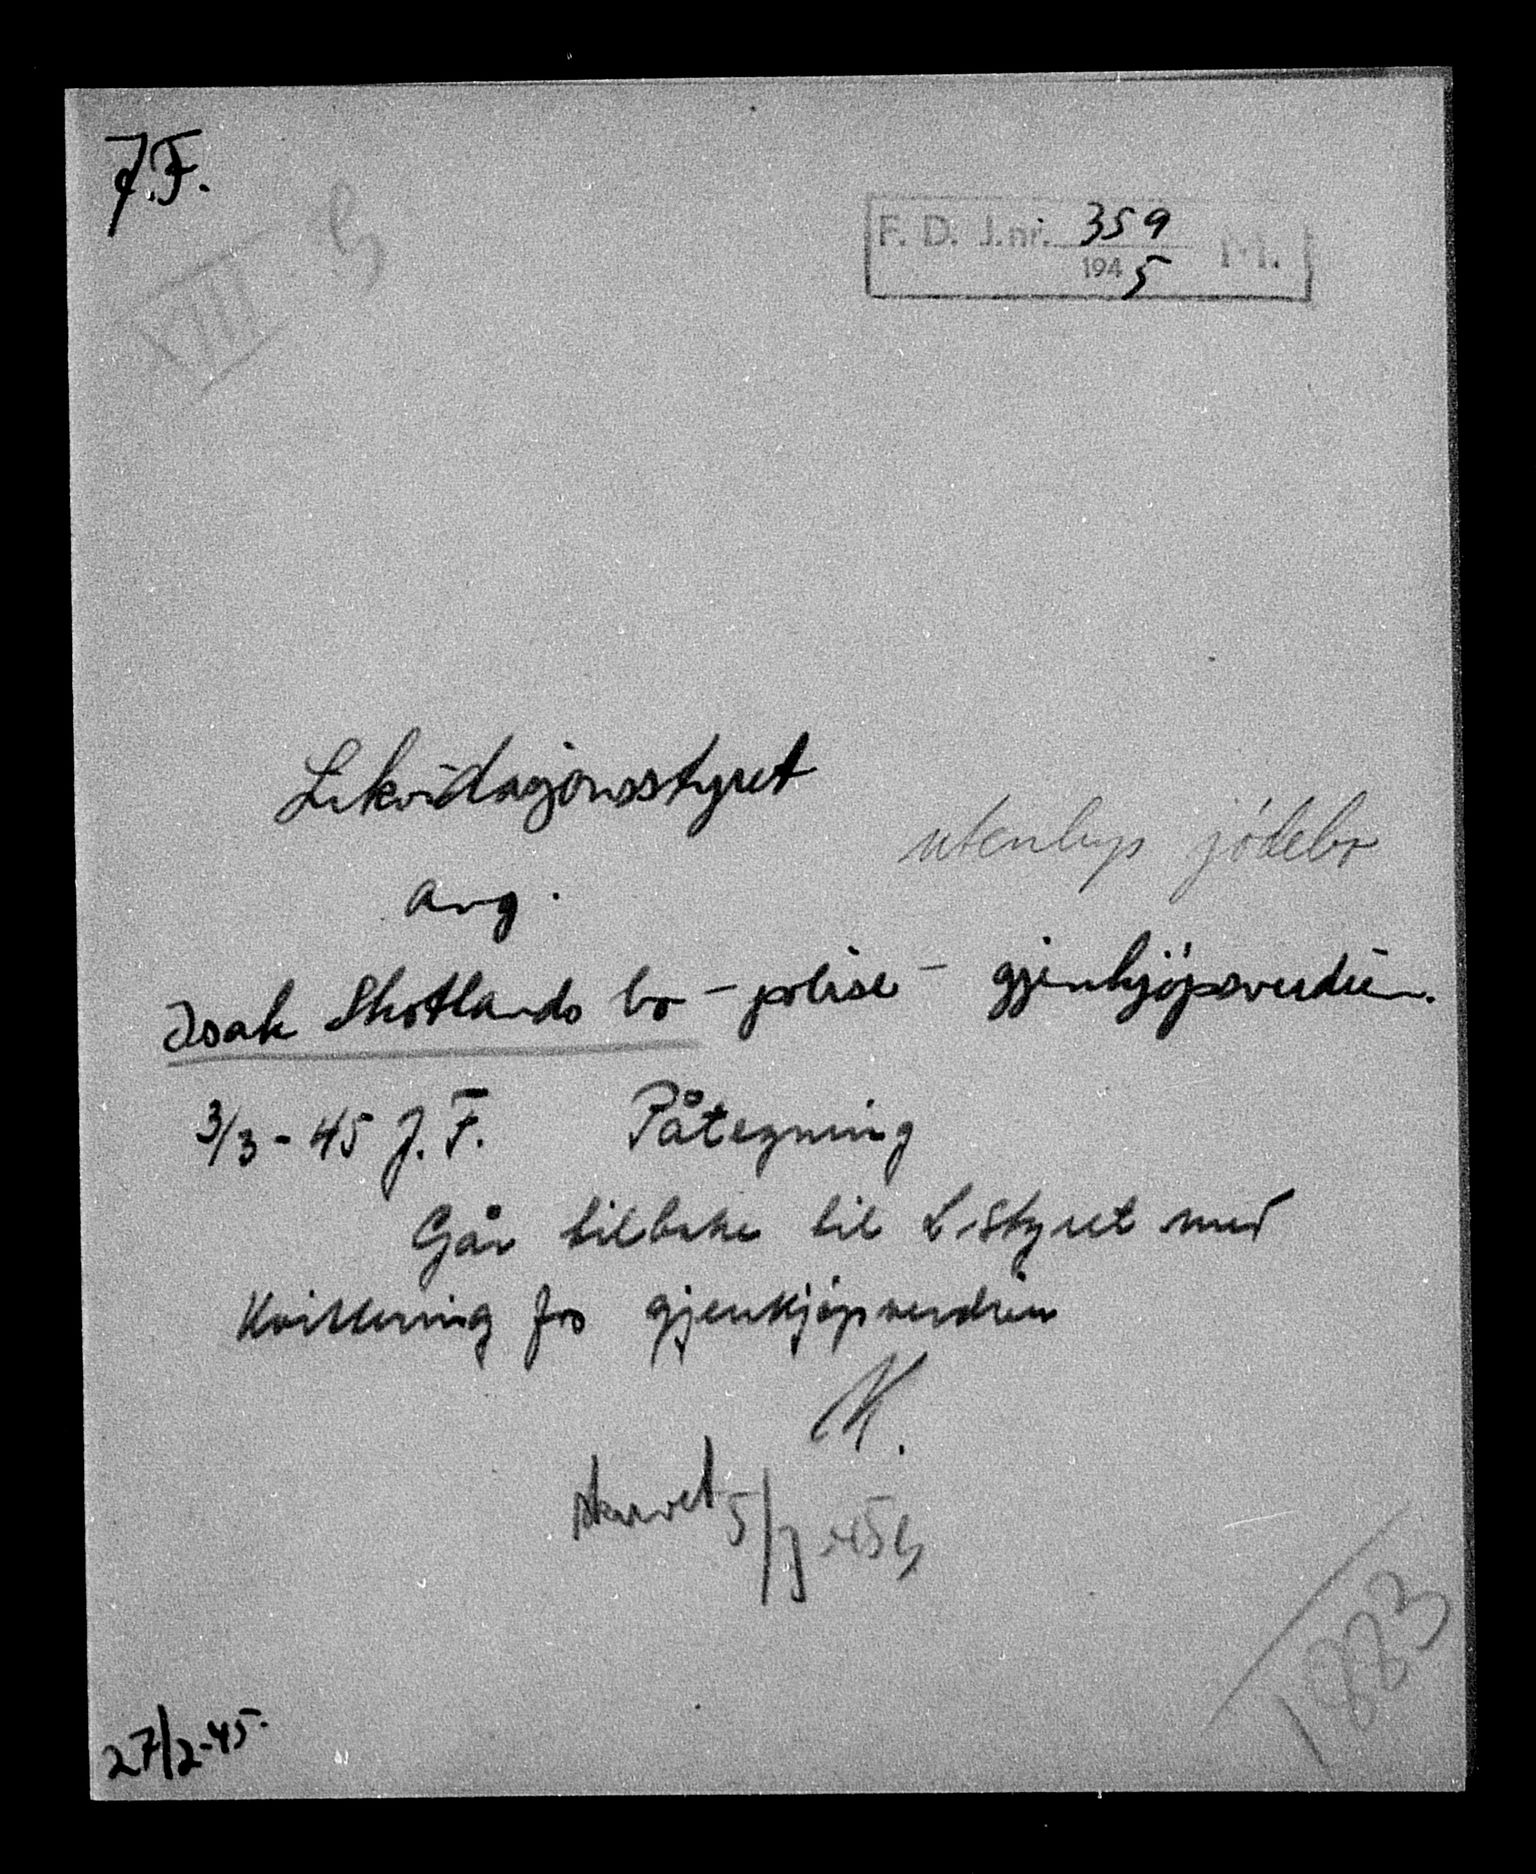 J.F.
XIII
F. D. J.nr. 359 M.
1945
Likvidasjonsstyret
utenbys jödebo
ang.
Isak Shotlands bo - polise - gjenkjöpsverdien.
3/3-45 J.F. Påtegning
Går tilbake til L-styret med
Kvittering for gjenkjöpsverdien
K.
skrevet 5/3-45
1883
27/2-45.